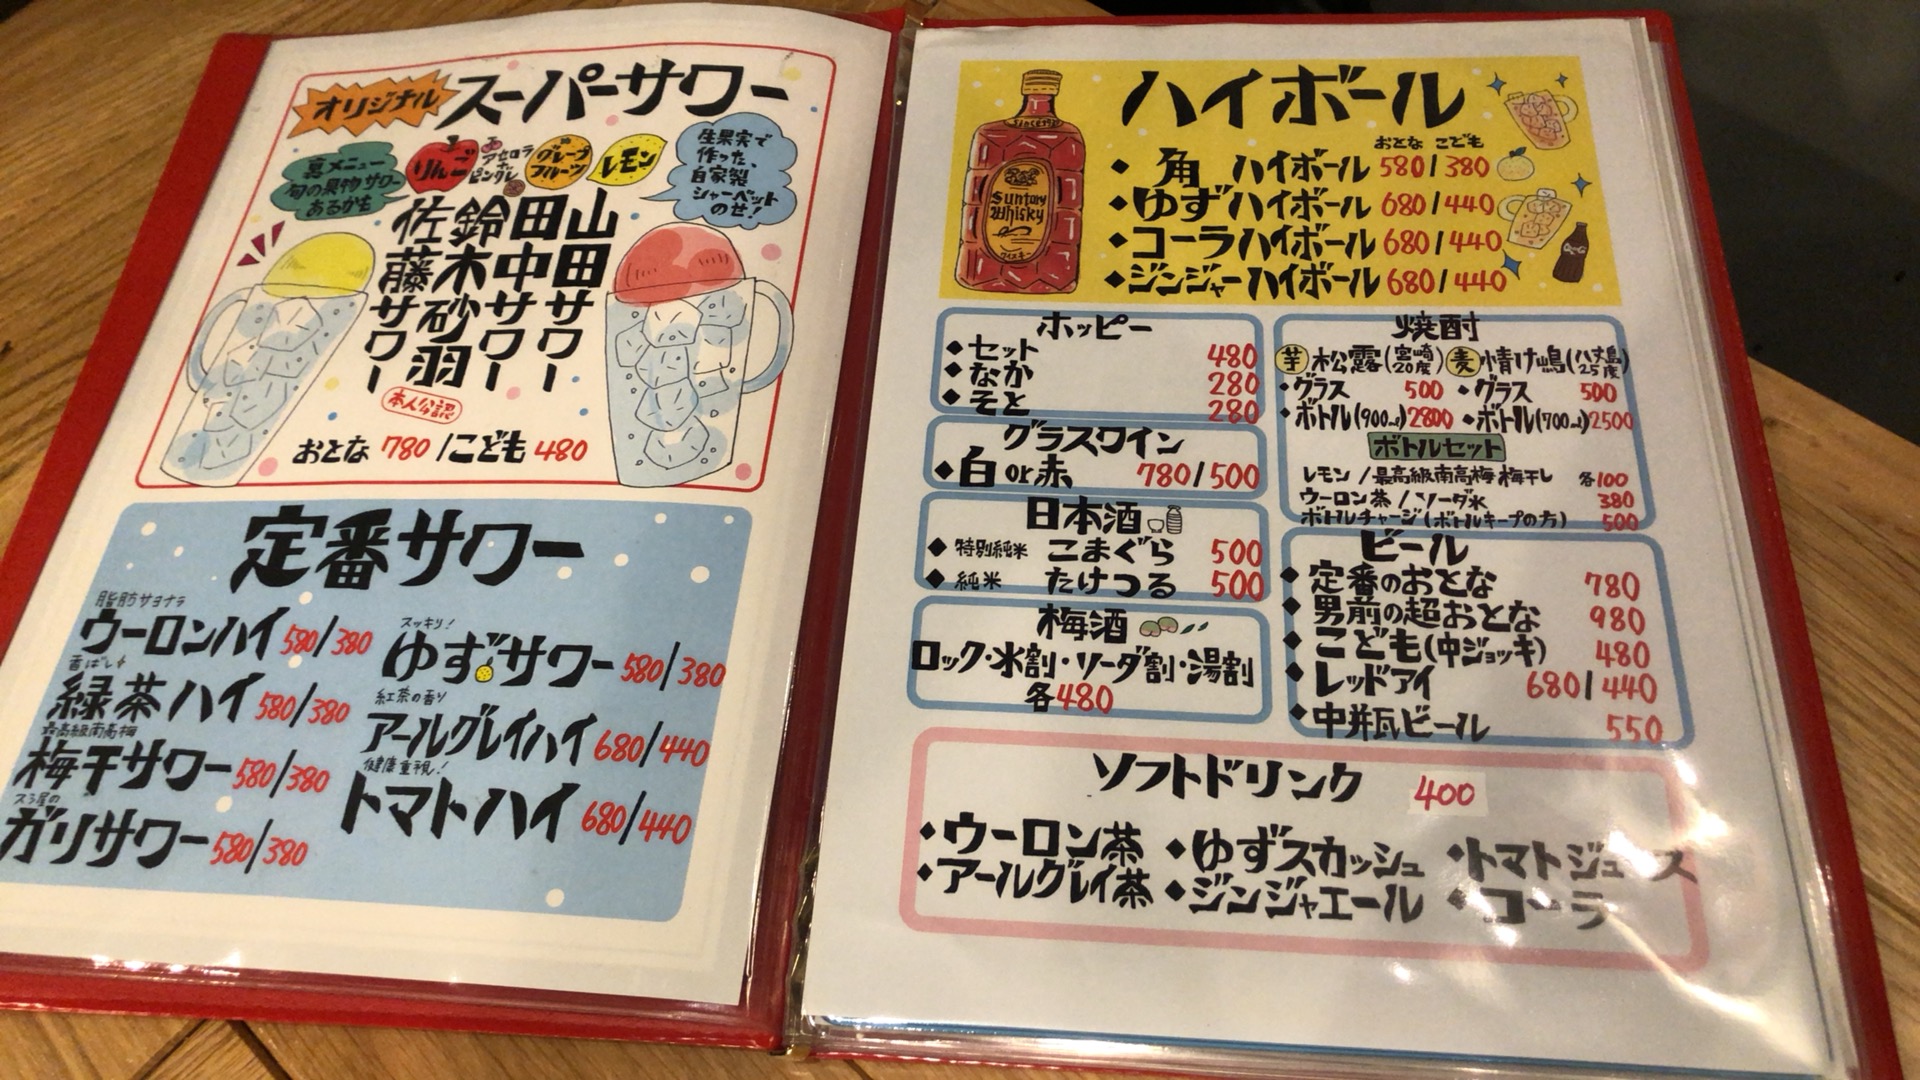 オリジナル スーパーサワー
裏メニュー
旬の果物サワー
あるかも
りんご
アセロラ
ピングレ
グレープ
フルーツ
レモン
生果実で
作った、
自家製
シャーベット
のせ!
山田サワー
田中サワー
鈴木砂羽
佐藤サワー
本人公認
おとな 780 /こども 480
定番サワー
脂肪サヨナラ
ウーロンハイ 580/380
香ばしく
緑茶ハイ 580/380
最高級南高梅
梅干サワー 580/380
ガリサワー 580/380
スッキリ!
ゆずサワー 580/380
紅茶の香り
アールグレイハイ 680/440
健康重視!
トマトハイ 680/440
ハイボール
おとな こども
・角 ハイボール 580/380
・ゆずハイボール 680/440
・コーラハイボール 680/440
・ジンジャーハイボール 680/440
Suntory
Whisky
ウイスキー
ホッピー
◆セット 480
◆なか 280
◆そと 280
グラスワイン
◆白or赤 780/500
日本酒
◆特別純米 こまぐら 500
◆純米 たけつる 500
梅酒
ロック・水割・ソーダ割・湯割
各480
焼酎
芋 松露(宮崎20度) 麦 情け嶋(八丈島25度)
・グラス 500 ・グラス 500
・ボトル(900ml)2800 ・ボトル(700ml)2500
ボトルセット
レモン/最高級南高梅 梅干し 各100
ウーロン茶/ソーダ水 380
ボトルチャージ(ボトルキープの方) 500
ビール
◆定番のおとな 780
◆男前の超おとな 980
◆こども(中ジョッキ) 480
◆レッドアイ 680/440
◆中井瓦ビール 550
ソフトドリンク 400
◆ウーロン茶 ◆ゆずスカッシュ ◆トマトジュース
◆アールグレイ茶 ◆ジンジャエール ◆コーラ